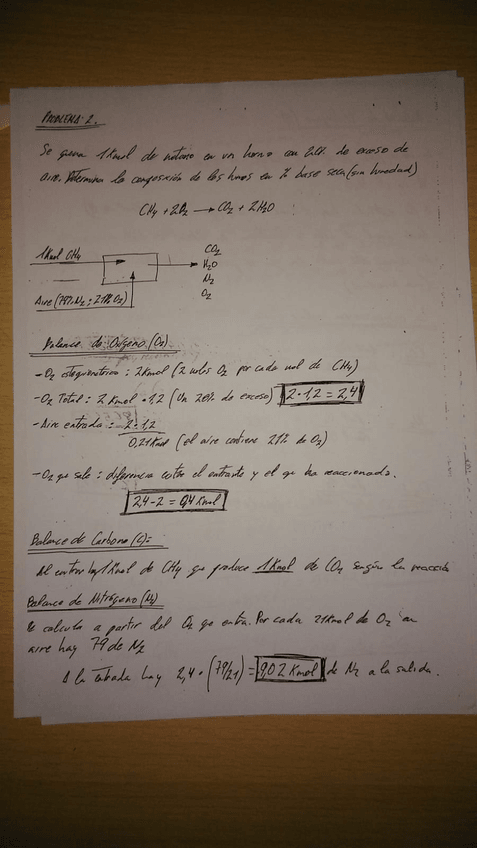 PROBLEMA-2.
Se quema 1Kmol de metano en un horno con 20% de exceso de
aire. Determina la composición de los humos en % base seca (sin humedad)
CH4 + 2O2 → CO2 + 2H2O
1Kmol CH4
CO2
H2O
N2
O2
Aire (79% N2 ; 21% O2)
Balance de Oxígeno (O2)
- O2 estequiométrico : 2Kmol (2 moles O2 por cada mol de CH4)
- O2 Total : 2 Kmol · 1,2 (un 20% de exceso) 2·1,2 = 2,4
- Aire entrada : 2·1,2
0,21Kmol (el aire contiene 21% de O2)
- O2 que sale : diferencia entre el entrante y el que ha reaccionado.
2,4-2 = 0,4 Kmol
Balance de Carbono (C)=
Al entrar hay 1Kmol de CH4 que produce 1Kmol de CO2 según la reacción
Balance de Nitrógeno (N2)
Se calcula a partir del O2 que entra. Por cada 21Kmol de O2 en
aire hay 79 de N2
A la entrada hay 2,4 · (79/21) = 9,02 Kmol de N2 a la salida.